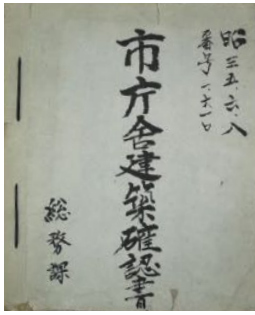 昭三五、六、八
番号一、六一口
市庁舎建築確認書
総務課